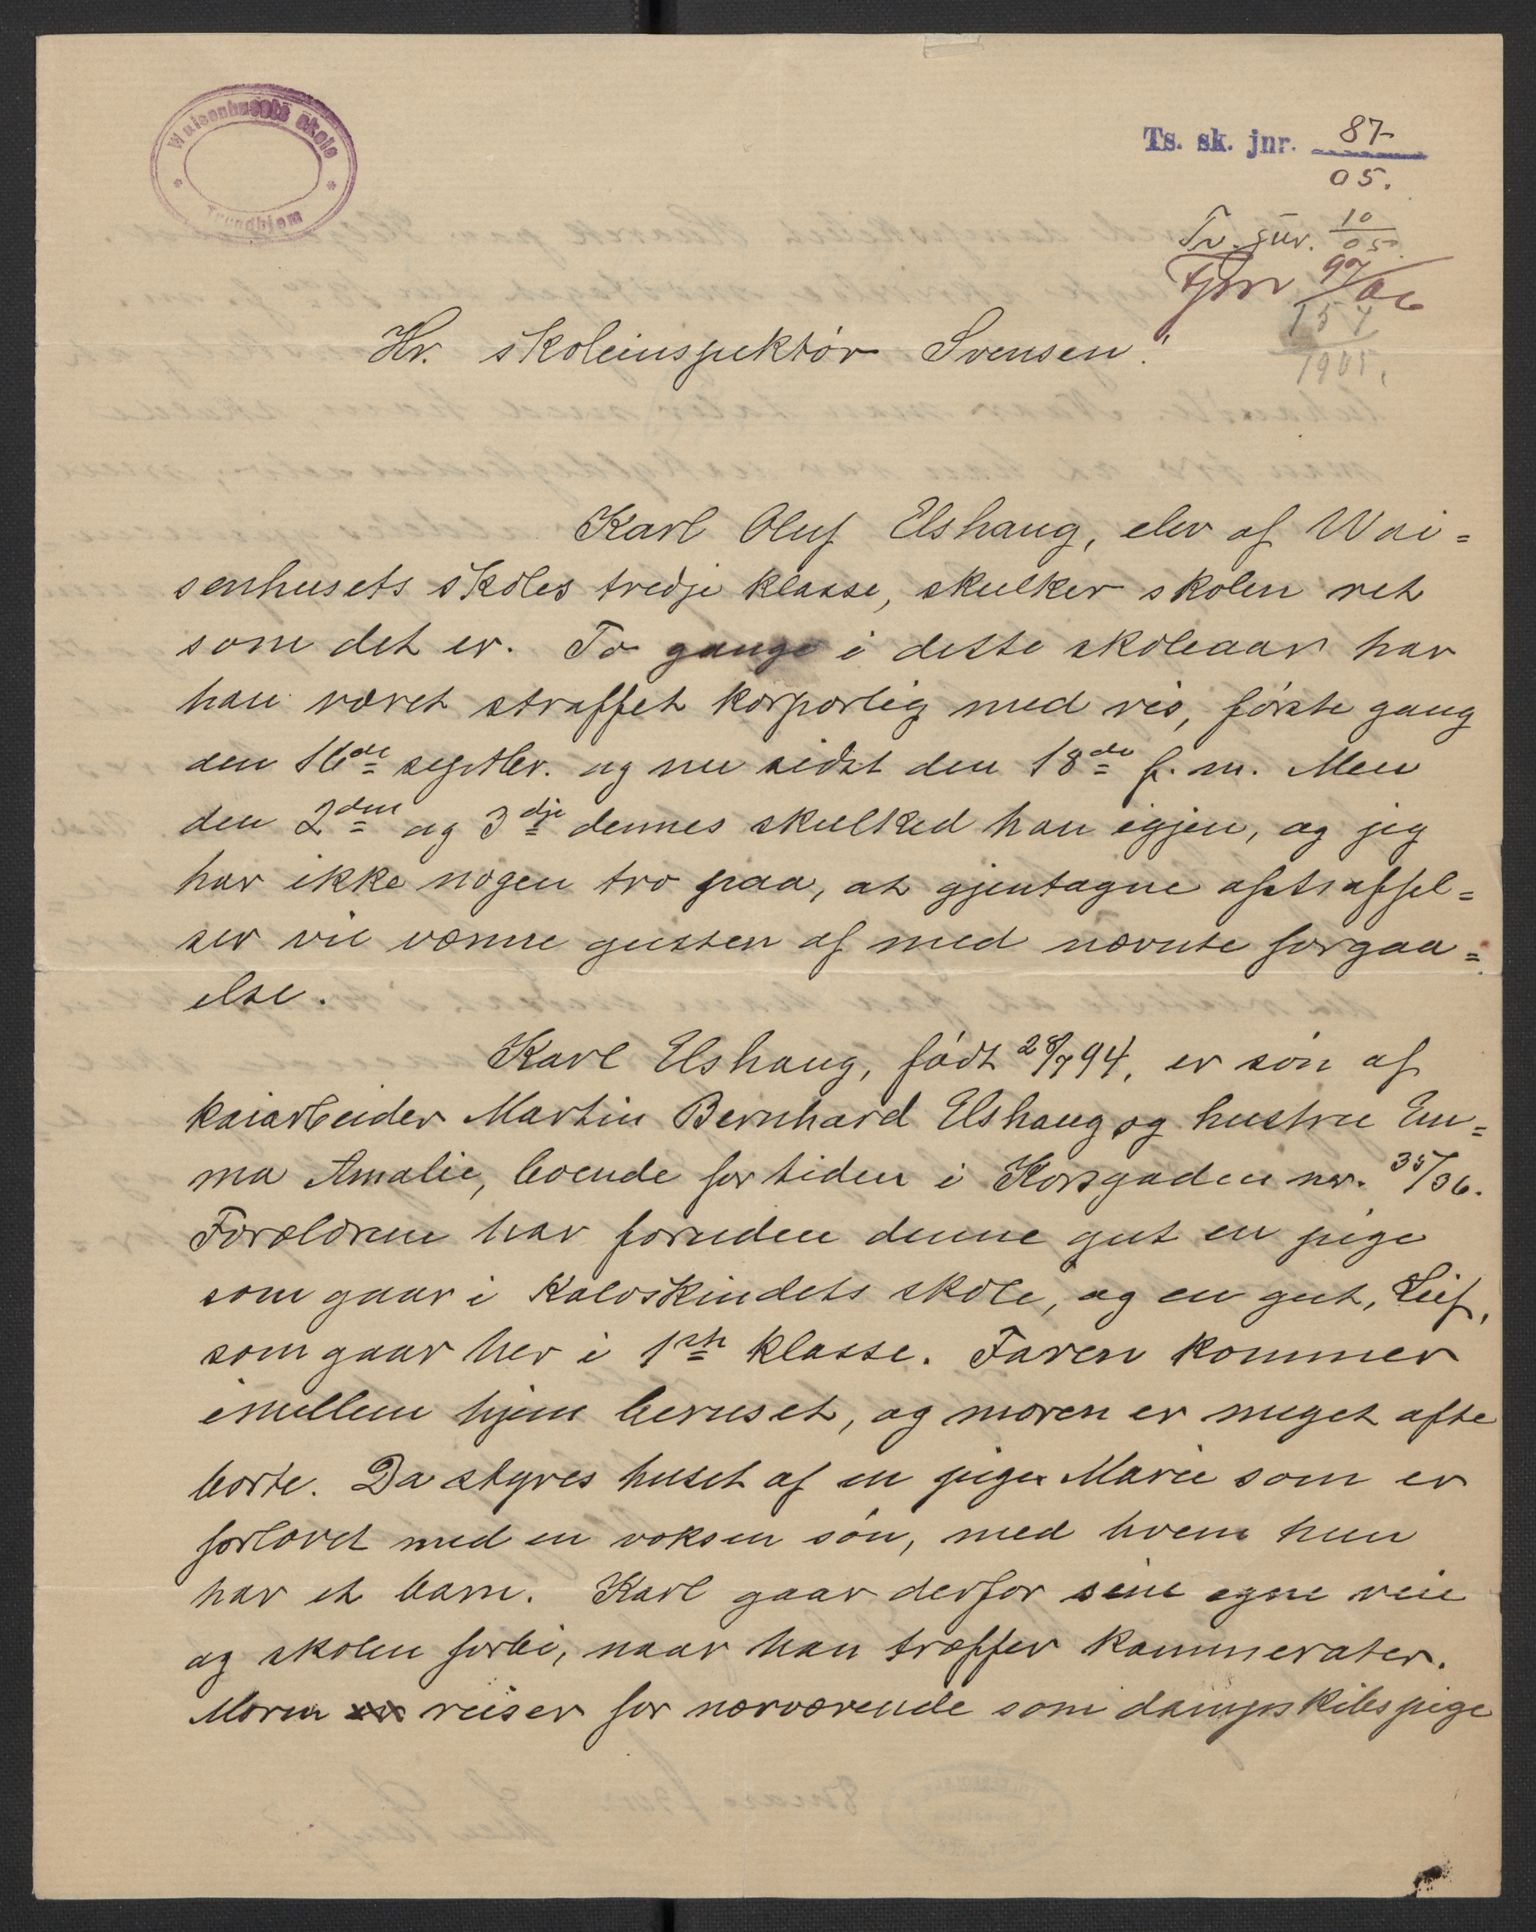 Waisenhusets skole
Trondhjem
Ts. sk. jnr. 87
05.
Tv. jur. 10
05.
Tjnr 97/06
157
1905.
Hr. skoleinspektør Svensen!
Karl Oluf Elshaug, elev af Wai=
senhusets skoles tredje klasse, skulker skolen ret
som det er. To gange i dette skoleaar har
han været straffet korporlig med ris, første gang
den 16de septbr. og nu sidst den 18de f. m. Men
den 2den og 3dje dennes skulked han igjen, og jeg
har ikke nogen tro paa, at gjentagne afstraffel=
ser vil vænne gutten af med nævnte forgaa=
else.
Karl Elshaug, født 28/7 94, er søn af
kaiarbeider Martin Bernhard Elshaug og hustru Em=
ma Amalie, boende for tiden i Korsgaden nr. 35/36.
Forældrene har foruden denne gut en pige
som gaar i Kalvskindets skole, og en gut, Leif,
som gaar her i 1ste klasse. Faren kommer
imellem hjem beruset, og moren er meget ofte
borte. Da styres huset af en pige Marie som er
forlovet med en voksen søn, med hvem hun
har et barn. Karl gaar derfor sine egne veie
og skolen forbi, naar han træffer kammerater.
Moren reiser for nærværende som dampskibspige